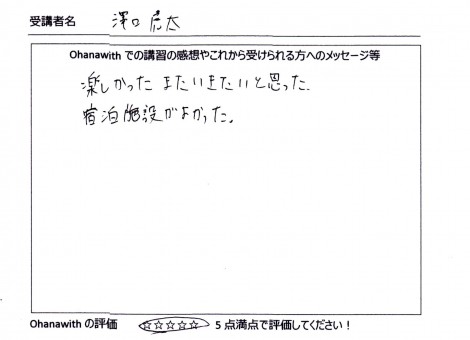 受講者名 澤口虎太
Ohanawith での講習の感想やこれから受けられる方へのメッセージ等
楽しかった またいきたいと思った.
宿泊施設がよかった。
Ohanawith の評価 ☆☆☆☆☆ 5 点満点で評価してください！